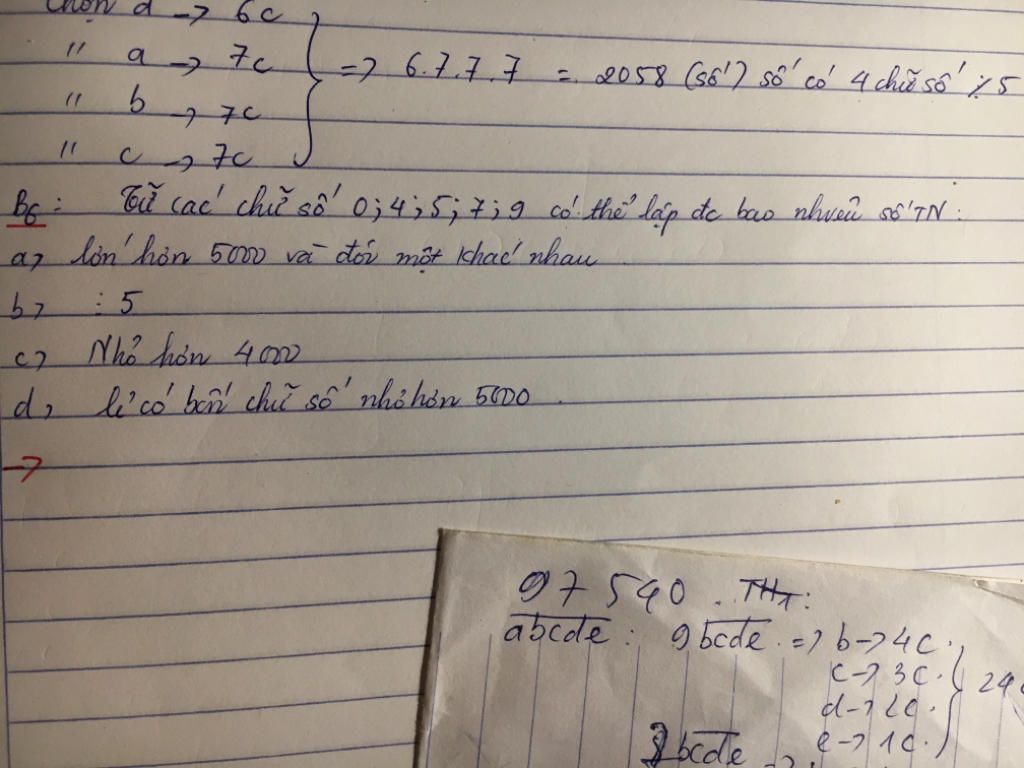 Chọn d → 6c
" a → 7c
" b → 7c
" c → 7c
=> 6.7.7.7 = 2058 (số) số có 4 chữ số ⋮ 5
B6: Từ các chữ số 0;4;5;7;9 có thể lập đc bao nhiêu số TN:
a, lớn hơn 5000 và đôi một khác nhau
b, ⋮ 5
c, Nhỏ hơn 4000
d, lẻ có bốn chữ số nhỏ hơn 5000.
→
97540. TH1:
abcde: 9bcde => b → 4c.
c → 3c.
d → 2c.
e → 1c.
24
bcde